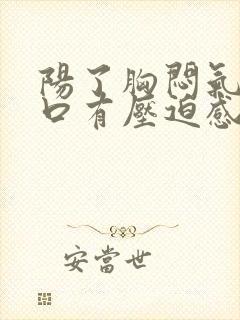 陽了胸悶氣
口有壓迫感
安當世